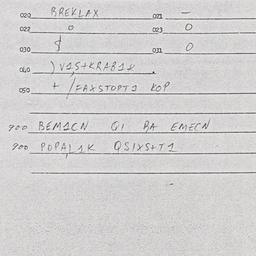 020 BREKLAX 021 —
022 0 023 0
030 031 0
040 ) V1S+KRAB12
050 + /FAXSTOPT1 KOP
900 BEM1CN QI RA EMECN
900 POPAL1K QSIXS+T1